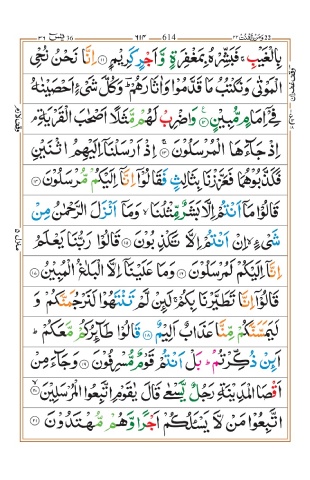 يٰسٓ ٣٦ ٦١٣ 614 وَمَنْ يَّقْنُتْ ٢٢
بِالْغَيْبِ ۚ فَبَشِّرْهُ بِمَغْفِرَةٍ وَّاَجْرٍ كَرِيْمٍ ١١ اِنَّا نَحْنُ نُحْيِ
الْمَوْتٰى وَنَكْتُبُ مَا قَدَّمُوْا وَاٰثَارَهُمْ ؕ وَكُلَّ شَيْءٍ اَحْصَيْنٰهُ
فِيْٓ اِمَامٍ مُّبِيْنٍ ١٢ وَاضْرِبْ لَهُمْ مَّثَلًا اَصْحٰبَ الْقَرْيَةِ ۘ
اِذْ جَآءَهَا الْمُرْسَلُوْنَ ١٣ اِذْ اَرْسَلْنَآ اِلَيْهِمُ اثْنَيْنِ
فَكَذَّبُوْهُمَا فَعَزَّزْنَا بِثَالِثٍ فَقَالُوْٓا اِنَّآ اِلَيْكُمْ مُّرْسَلُوْنَ ١٤
قَالُوْا مَآ اَنْتُمْ اِلَّا بَشَرٌ مِّثْلُنَا ۙ وَمَآ اَنْزَلَ الرَّحْمٰنُ مِنْ
شَيْءٍ ۙ اِنْ اَنْتُمْ اِلَّا تَكْذِبُوْنَ ١٥ قَالُوْا رَبُّنَا يَعْلَمُ
اِنَّآ اِلَيْكُمْ لَمُرْسَلُوْنَ ١٦ وَمَا عَلَيْنَآ اِلَّا الْبَلٰغُ الْمُبِيْنُ ١٧
قَالُوْٓا اِنَّا تَطَيَّرْنَا بِكُمْ ۚ لَئِنْ لَّمْ تَنْتَهُوْا لَنَرْجُمَنَّكُمْ وَ
لَيَمَسَّنَّكُمْ مِّنَّا عَذَابٌ اَلِيْمٌ ١٨ قَالُوْا طَآئِرُكُمْ مَّعَكُمْ ؕ
اَئِنْ ذُكِّرْتُمْ ؕ بَلْ اَنْتُمْ قَوْمٌ مُّسْرِفُوْنَ ١٩ وَجَآءَ مِنْ
اَقْصَا الْمَدِيْنَةِ رَجُلٌ يَّسْعٰى قَالَ يٰقَوْمِ اتَّبِعُوا الْمُرْسَلِيْنَ ٢٠
اتَّبِعُوْا مَنْ لَّا يَسْئَلُكُمْ اَجْرًا وَّهُمْ مُّهْتَدُوْنَ ٢١